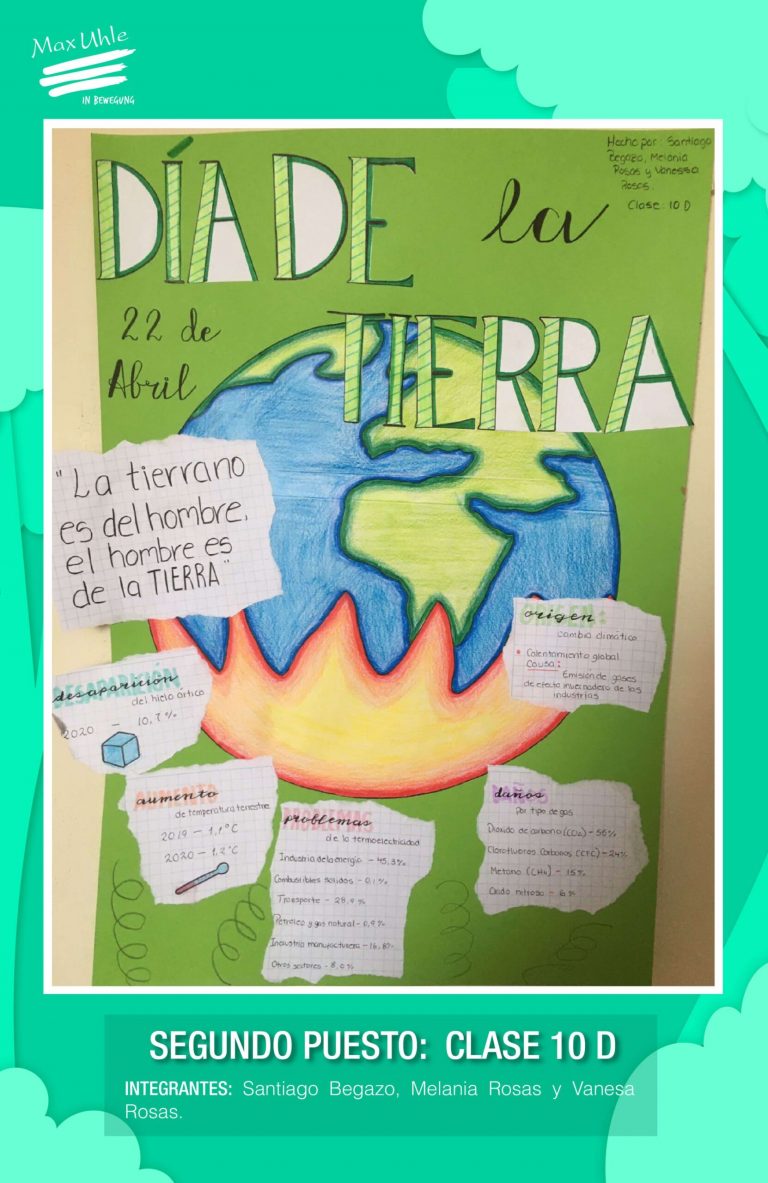 Max Uhle
IN BEWEGUNG
DÍA DE la
TIERRA
Hecho por: Santiago
Begazo, Melania
Rosas y Vanessa
Rosas.
Clase: 10 D
22 de
Abril
"La tierra no
es del hombre,
el hombre es
de la TIERRA"
ORIGEN:
origen
cambio climático
Calentamiento global
Causa:
Emisión de gases
de efecto invernadero de las
industrias
DESAPARICIÓN
desaparición
del hielo ártico
2020 - 10,7%
AUMENTO
aumento
de temperatura terrestre
2019 - 1,1°C
2020 - 1,2°C
PROBLEMAS
problemas
de la termoelectricidad
Industria de la energía - 45,3%
Combustibles sólidos - 0,1%
Transporte - 28,9%
Petróleo y gas natural - 0,9%
Industria manufacturera - 16,8%
Otros sectores - 8,0%
DAÑOS
daños
por tipo de gas
Dioxido de carbono (CO2) - 55%
Clorofluoros Carbonos (CFC) - 24%
Metano (CH4) - 15%
Oxido nitroso - 6%
SEGUNDO PUESTO: CLASE 10 D
INTEGRANTES: Santiago Begazo, Melania Rosas y Vanesa
Rosas.